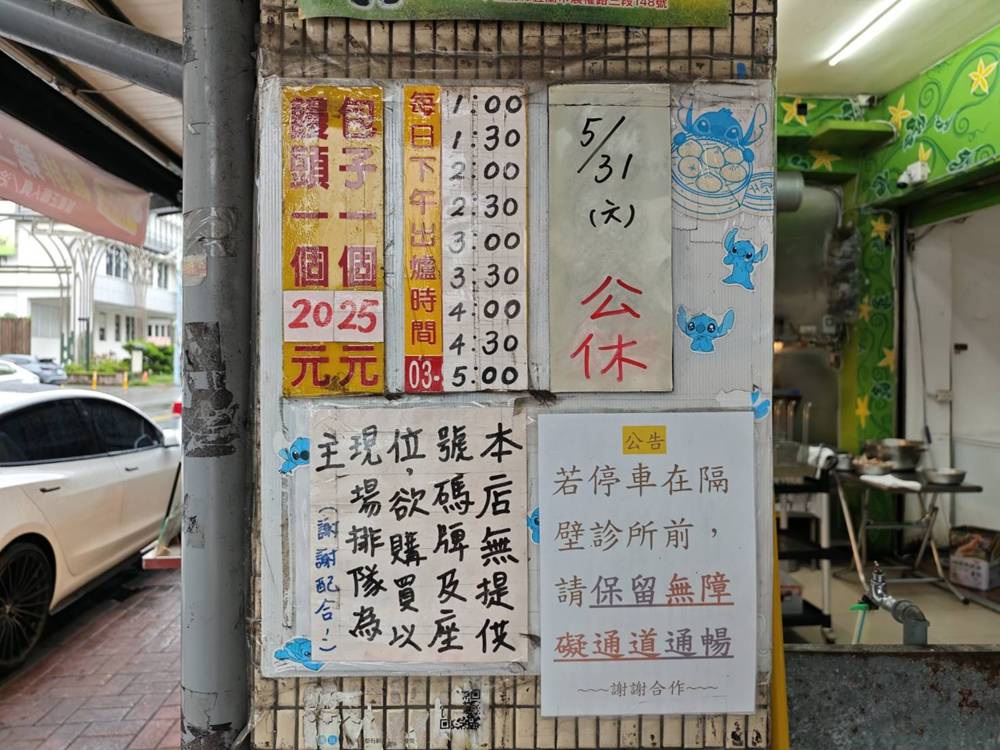 宜蘭市農權路三段148號
包子一個25元
饅頭一個20元
每日下午出爐時間
03-
1:00
1:30
2:00
2:30
3:00
3:30
4:00
4:30
5:00
5/31
(六)
公休
本店無提供
號碼牌及座
位,欲購買以
現場排隊為
主(謝謝配合!)
公告
若停車在隔
壁診所前,
請保留無障
礙通道通暢
~~~謝謝合作~~~